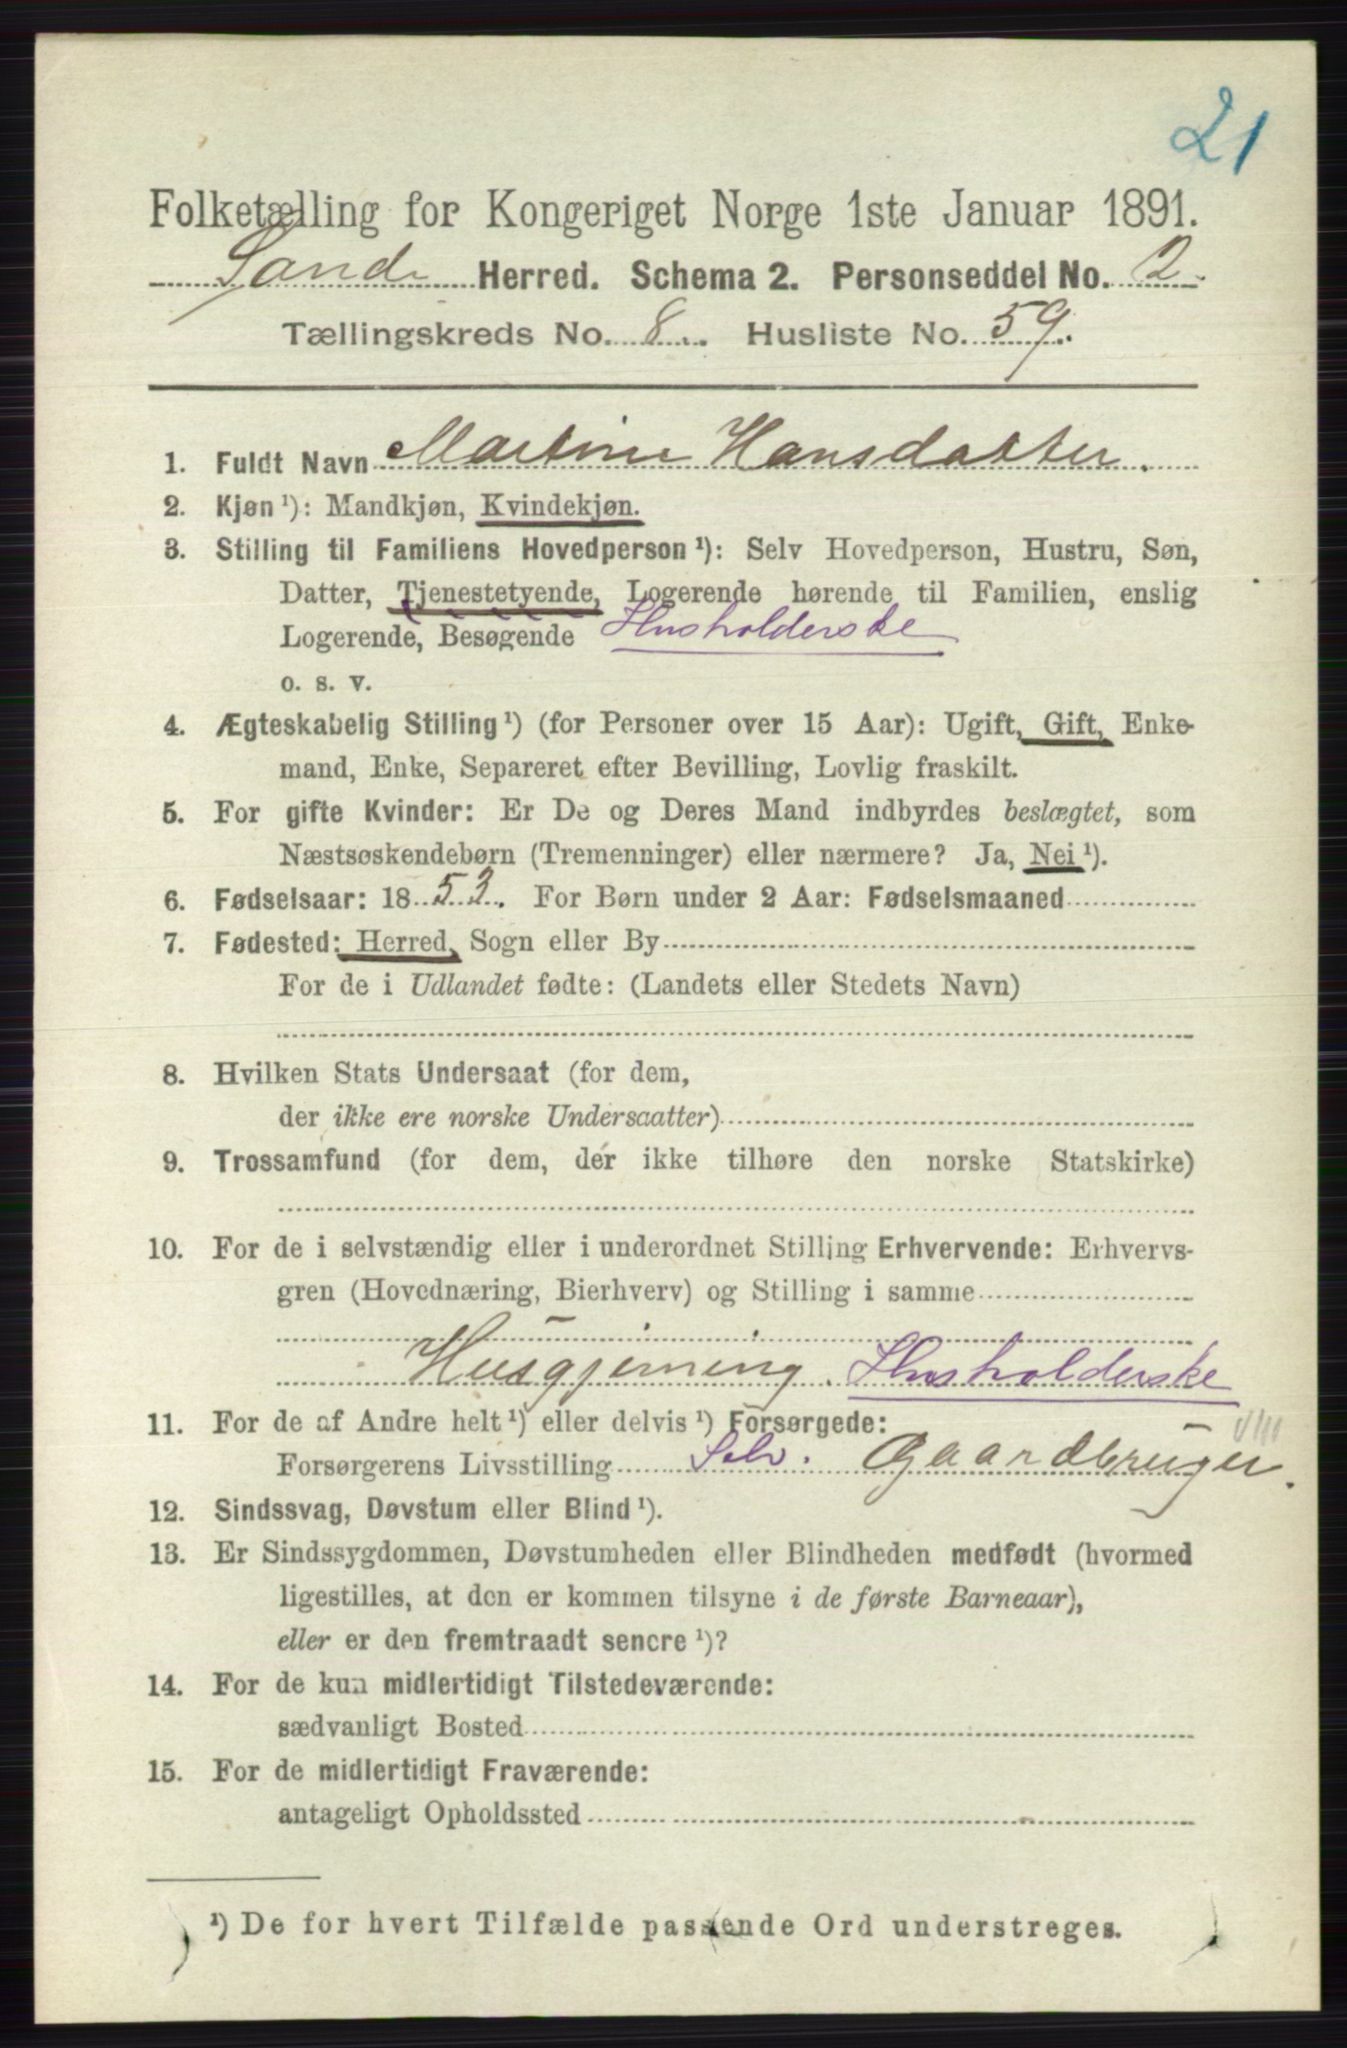 21
Folketælling for Kongeriget Norge 1ste Januar 1891.
Sande Herred. Schema 2. Personseddel No. 2.
Tællingskreds No. 8. Husliste No. 59.
1. Fuldt Navn Martine Hansdatter.
2. Kjøn ¹): Mandkjøn, Kvindekjøn.
3. Stilling til Familiens Hovedperson ¹): Selv Hovedperson, Hustru, Søn,
Datter, Tjenestetyende, Logerende hørende til Familien, enslig
Logerende, Besøgende Husholderske
o. s. v.
4. Ægteskabelig Stilling ¹) (for Personer over 15 Aar): Ugift, Gift, Enke-
mand, Enke, Separeret efter Bevilling, Lovlig fraskilt.
5. For gifte Kvinder: Er De og Deres Mand indbyrdes beslægtet, som
Næstsøskendebørn (Tremenninger) eller nærmere? Ja, Nei ¹).
6. Fødselsaar: 1853. For Børn under 2 Aar: Fødselsmaaned
7. Fødested: Herred, Sogn eller By
For de i Udlandet fødte: (Landets eller Stedets Navn)
8. Hvilken Stats Undersaat (for dem,
der ikke ere norske Undersaatter)
9. Trossamfund (for dem, der ikke tilhøre den norske Statskirke)
10. For de i selvstændig eller i underordnet Stilling Erhvervende: Erhvervs-
gren (Hovednæring, Bierhverv) og Stilling i samme
Husgjerning. Husholderske
11. For de af Andre helt ¹) eller delvis ¹) Forsørgede:
Forsørgerens Livsstilling Selv. Gaardbruger.
12. Sindssvag, Døvstum eller Blind ¹).
13. Er Sindssygdommen, Døvstumheden eller Blindheden medfødt (hvormed
ligestilles, at den er kommen tilsyne i de første Barneaar),
eller er den fremtraadt senere ¹)?
14. For de kun midlertidigt Tilstedeværende:
sædvanligt Bosted
15. For de midlertidigt Fraværende:
antageligt Opholdssted
¹) De for hvert Tilfælde passende Ord understreges.